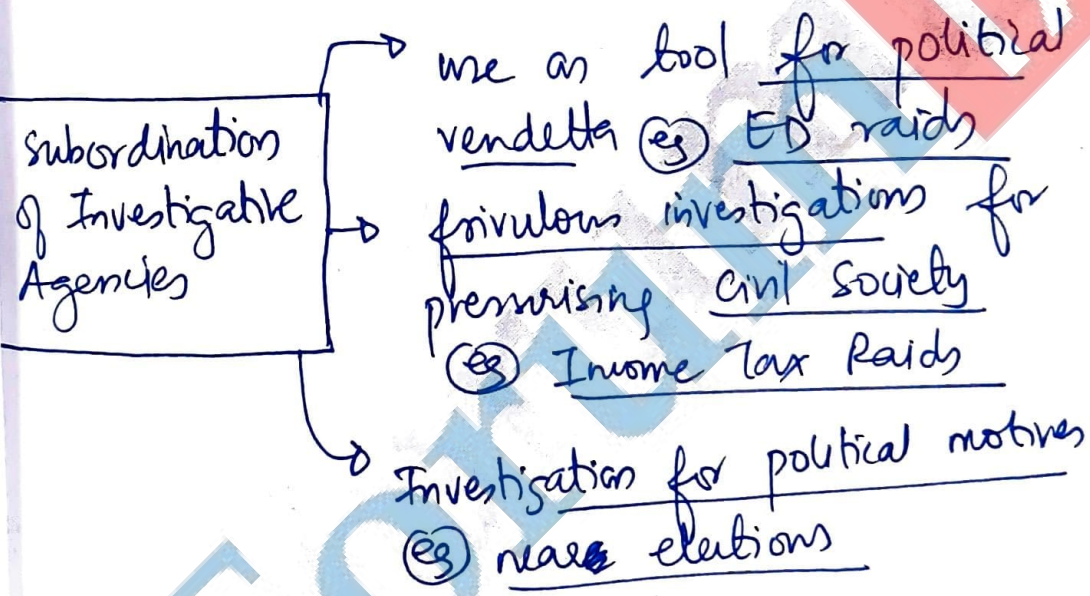 Subordination
of Investigative
Agencies
use as tool for political
vendetta eg ED raids
frivulous investigations for
pressurising Civil Society
eg Income Tax Raids
Investigation for political motives
eg near elections
orum